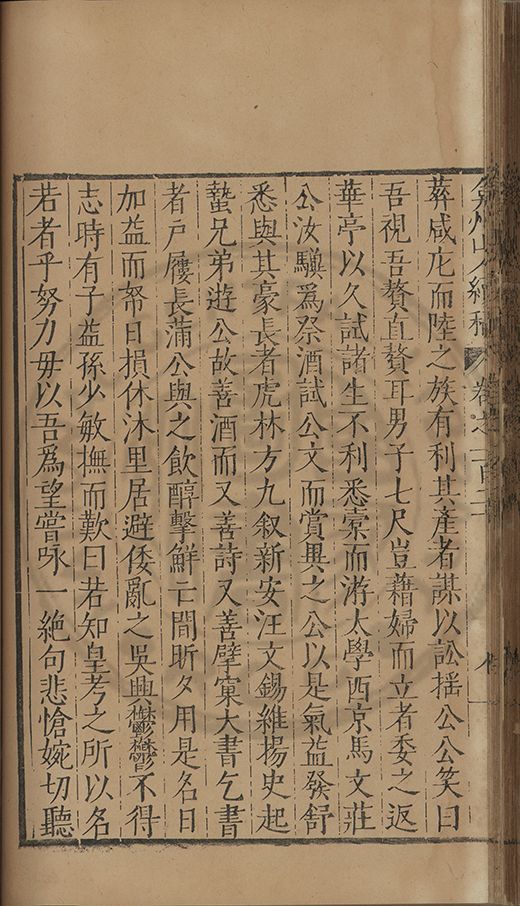 弇州山人續稿 卷之一百二
葬咸庀而陸之族有利其產者謀以訟揺公公笑曰
吾視吾贅直贅耳男子七尺豈藉婦而立者委之返
華亭以久試諸生不利悉槖而游太學西京馬文莊
公汝驥爲祭酒試公文而賞異之公以是氣益發舒
悉與其豪長者虎林方九叙新安汪文錫維揚史起
蟄兄弟遊公故善酒而又善詩又善擘窠大書乞書
者戶屨長滿公與之飲醇擊鮮亡間昕夕用是名日
加益而帑日損休沐里居避倭亂之吳興鬱鬱不得
志時有子益孫少敏撫而歎曰若知皇考之所以名
若者乎努力毋以吾爲望嘗咏一絕句悲愴婉切聽